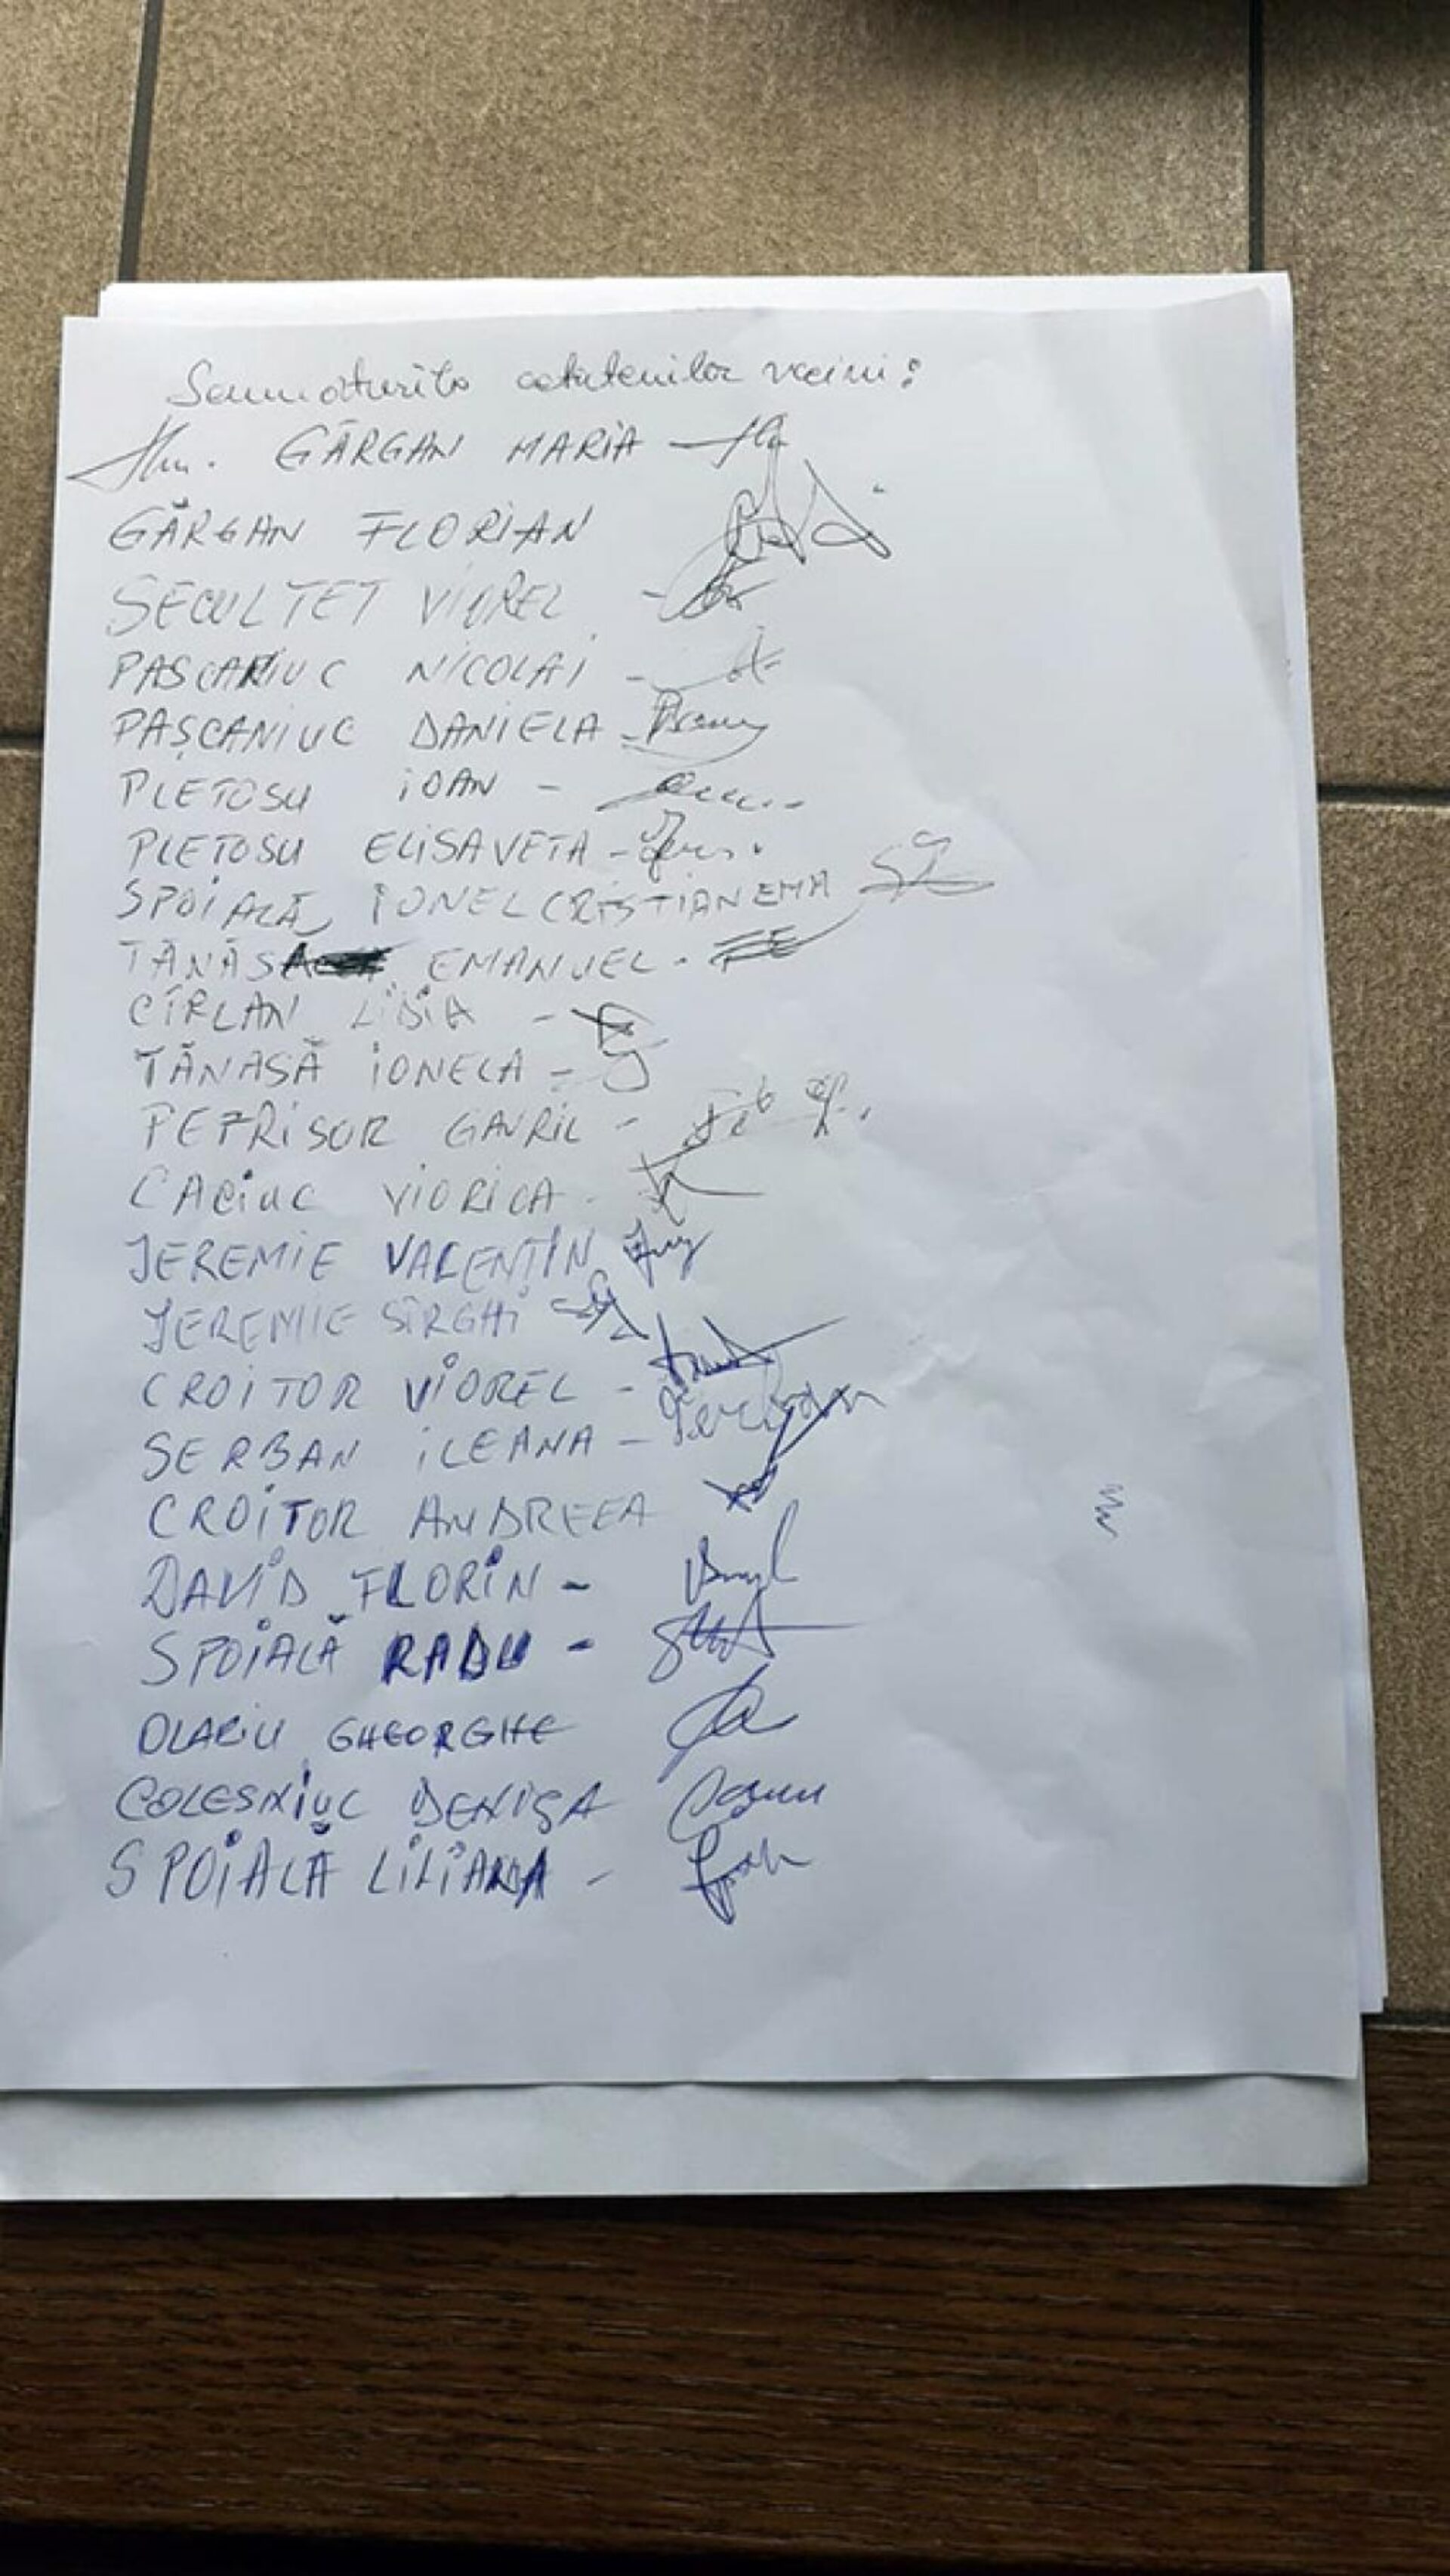 Semnăturile cetătenilor vecini:
GĂRGAN MARIA -
GĂRGAN FLORIAN
SECULTET VIOREL -
PASCANIUC NICOLAI -
PAȘCANIUC DANIELA -
PLETOSU IOAN -
PLETOSU ELISAVETA -
SPOIALĂ IONEL CRISTIAN EMA
TĂNĂSĂ EMANUEL -
CÎRLAN LIDIA -
TĂNASĂ IONELA -
PETRISOR GAVRIL -
CACIUC VIORICA -
JEREMIE VALENTIN
JEREMIE SÎRGHI
CROITOR VIOREL -
SERBAN ILEANA -
CROITOR ANDREEA
DAVID FLORIN -
SPOIALĂ RADU -
OLARIU GHEORGHE
COLESNIUC DENISA
SPOIALĂ LILIANA -